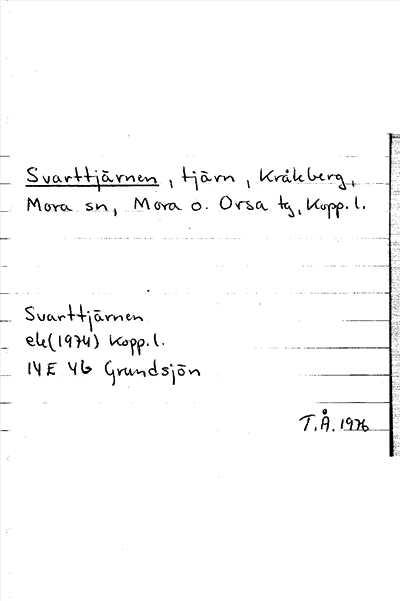 Svarttjärnen, tjärn, Kråkberg,
Mora sn, Mora o. Orsa tg, Kopp. l.
Svarttjärnen
ek(1974) Kopp. l.
14E 4b Grundsjön
T.Å. 1976